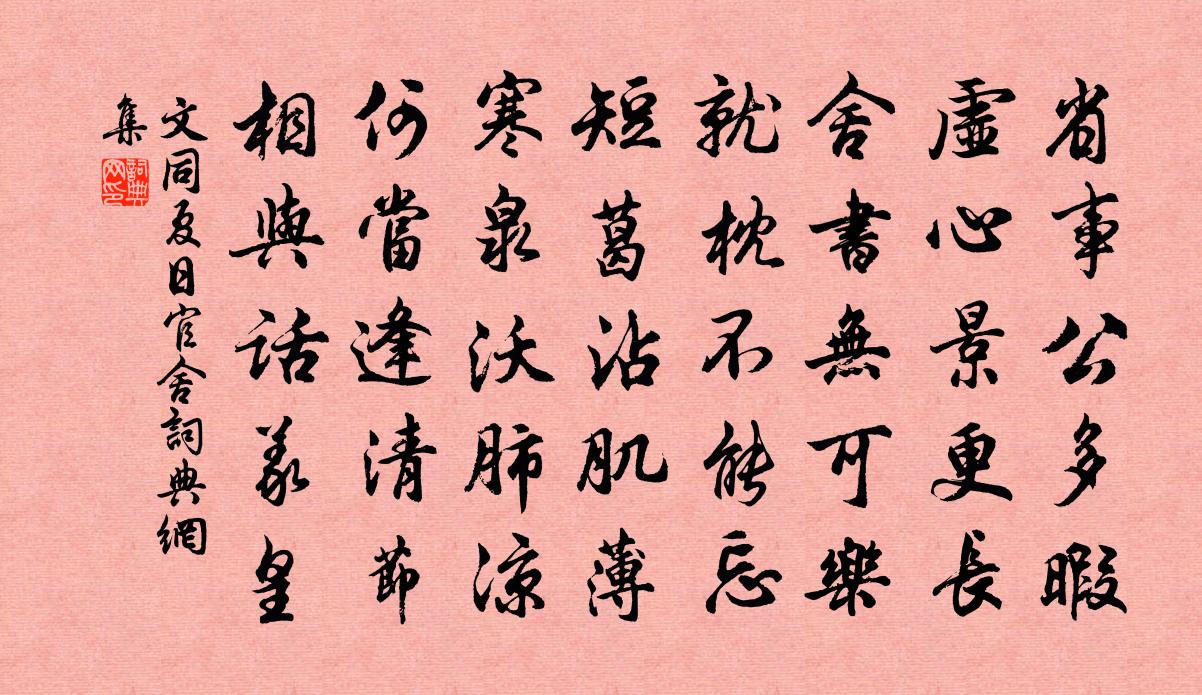 省事公多暇
虛心景更長
舍書無可樂
就枕不能忘
短葛沾肌薄
寒泉沃肺涼
何當逢清節
相與話羲皇
文同夏日官舍詞典網
集
詞典
网印